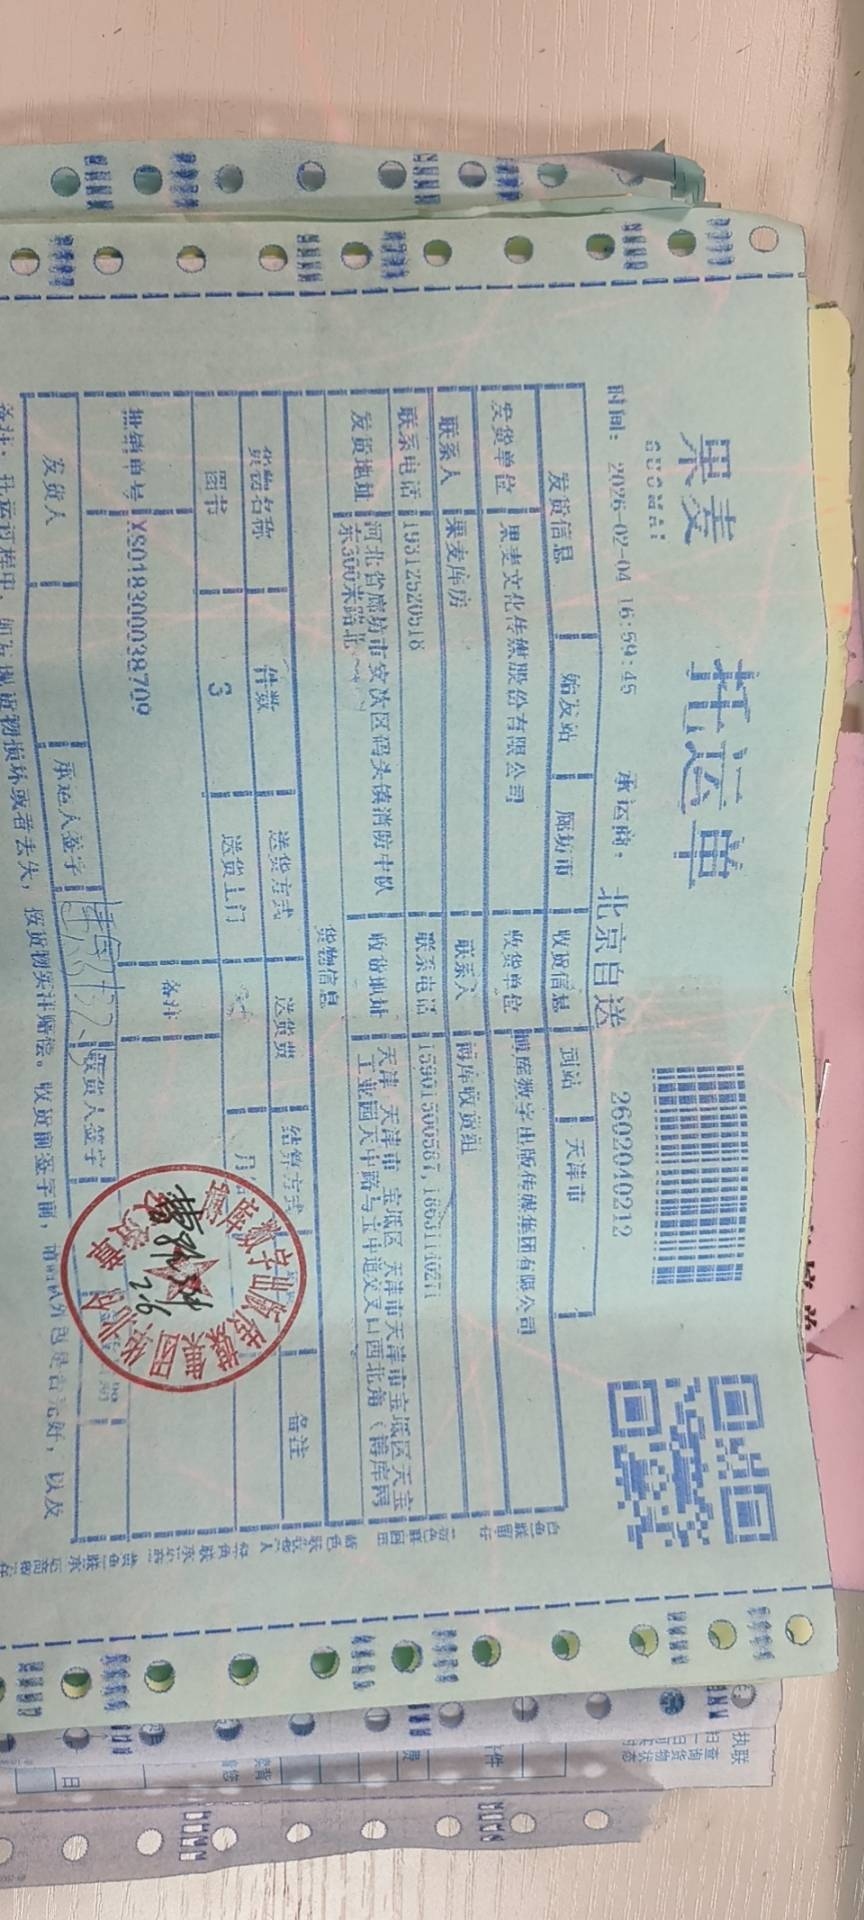 果麦
GUOMAI
托运单
时间: 2026-02-04 16:59:45 承运商: 北京自送 2602040212
发货信息 始发站 廊坊市 收货信息 到站 天津市
发货单位 果麦文化传媒股份有限公司 收货单位 博库数字出版传媒集团有限公司
联系人 果麦库房 联系人 博库收货组
联系电话 19312520518 联系电话
发货地址 河北省廊坊市安次区码头镇消防中队 收货地址 天津 天津市 宝坻区 天津市天津市宝坻区天宝
东300米路北 工业园天中路与宝中道交叉口西北角(博库网
货物信息
货物名称 件数 送货方式 送货费 结算方式 备注
图书 3 送货上门 月
批销单号 XS0183000038709 备注
发货人 承运人签字 收货人签字
2.6
备注: 托运过程中, 如发现货物损坏或者丢失, 按货物实洋赔偿。收货前签字前, 外包是否完好, 以及